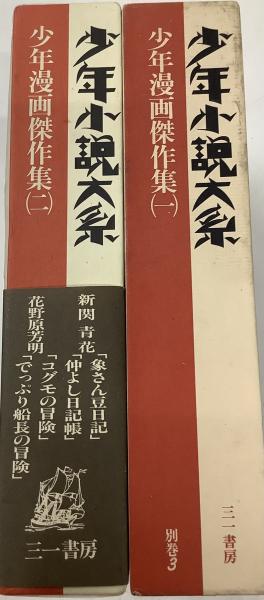 少年小説大系
少年漫画傑作集(一)
別巻3
三一書房
少年小説大系
少年漫画傑作集(二)
新関青花
「象さん豆日記」
「仲よし日記帳」
「コグモの冒険」
花野原芳明「でっぷり船長の冒険」
三一書房